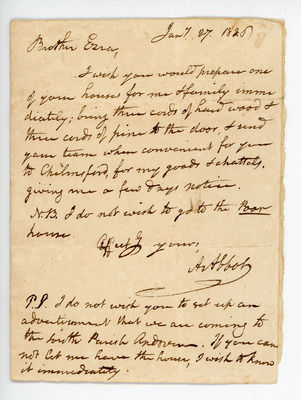 Jany. 27. 1826
Brother Ezra,
I wish you would prepare one
of your houses for me & family imme
diately; bring three cords of hard wood &
three cords of pine to the door, & send
your team when convenient for you
to Chelmsford, for my goods & chattels,
giving me a few days notice.
N.B. I do not wish to go to the Poor
house.
your,
A. Abbot
P.S. I do not wish you to set up an
advertisement that we are coming to
the South Parish Andover. If you can
not let me have the house, I wish to know
it immediately.